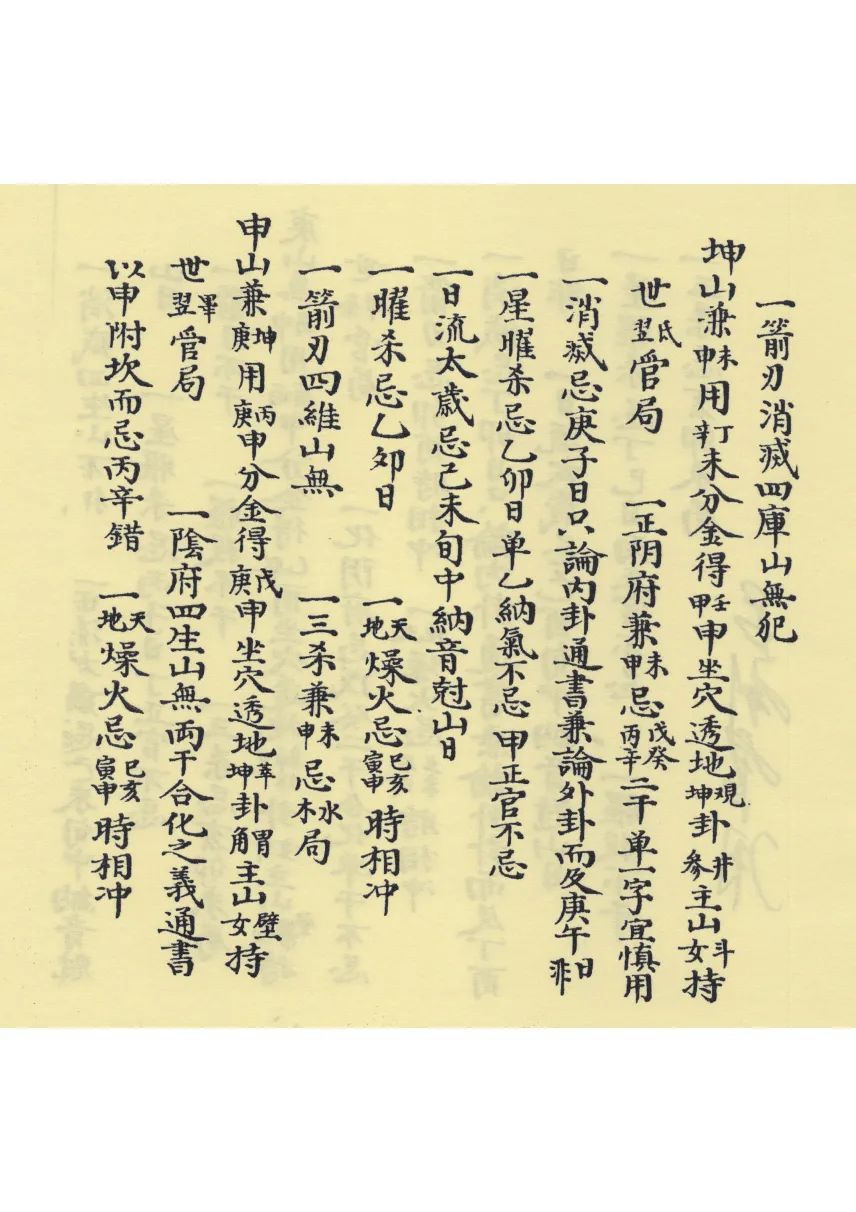 一箭刃消滅四庫山無犯
坤山兼未申用丁辛未分金得壬甲申坐穴透地觀坤卦井參主山斗女持
世氐翌管局　一正阴府兼未申忌戊癸丙辛二干单一字宜慎用
一消滅忌庚子日只論內卦通書兼論外卦而反庚午日非
一星曜杀忌乙卯日单乙納氣不忌甲正官不忌
一日流太歲忌己未旬中納音尅山日
一曜杀忌乙卯日　一天地燥火忌巳亥寅申時相冲
一箭刃四維山無　一三杀兼未申忌水木局
申山兼坤庚用丙庚申分金得戊庚申坐穴透地萃坤卦胃角主山壁女持
世畢翌管局　一陰府四生山無両干合化之義通書
以申附坎而忌丙辛錯　一天地燥火忌巳亥寅申時相冲